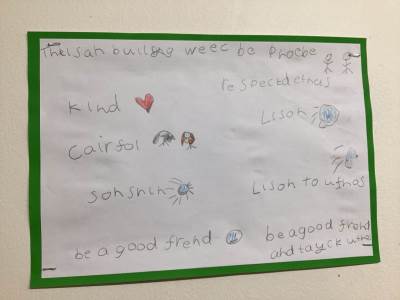 Thelsah builsng weec be Phoebe
respectdethas
kind
Lisoh
Cairfol
sohshin
Lisoh to uthas
be a good frend
be a good frend
and tayck uthe